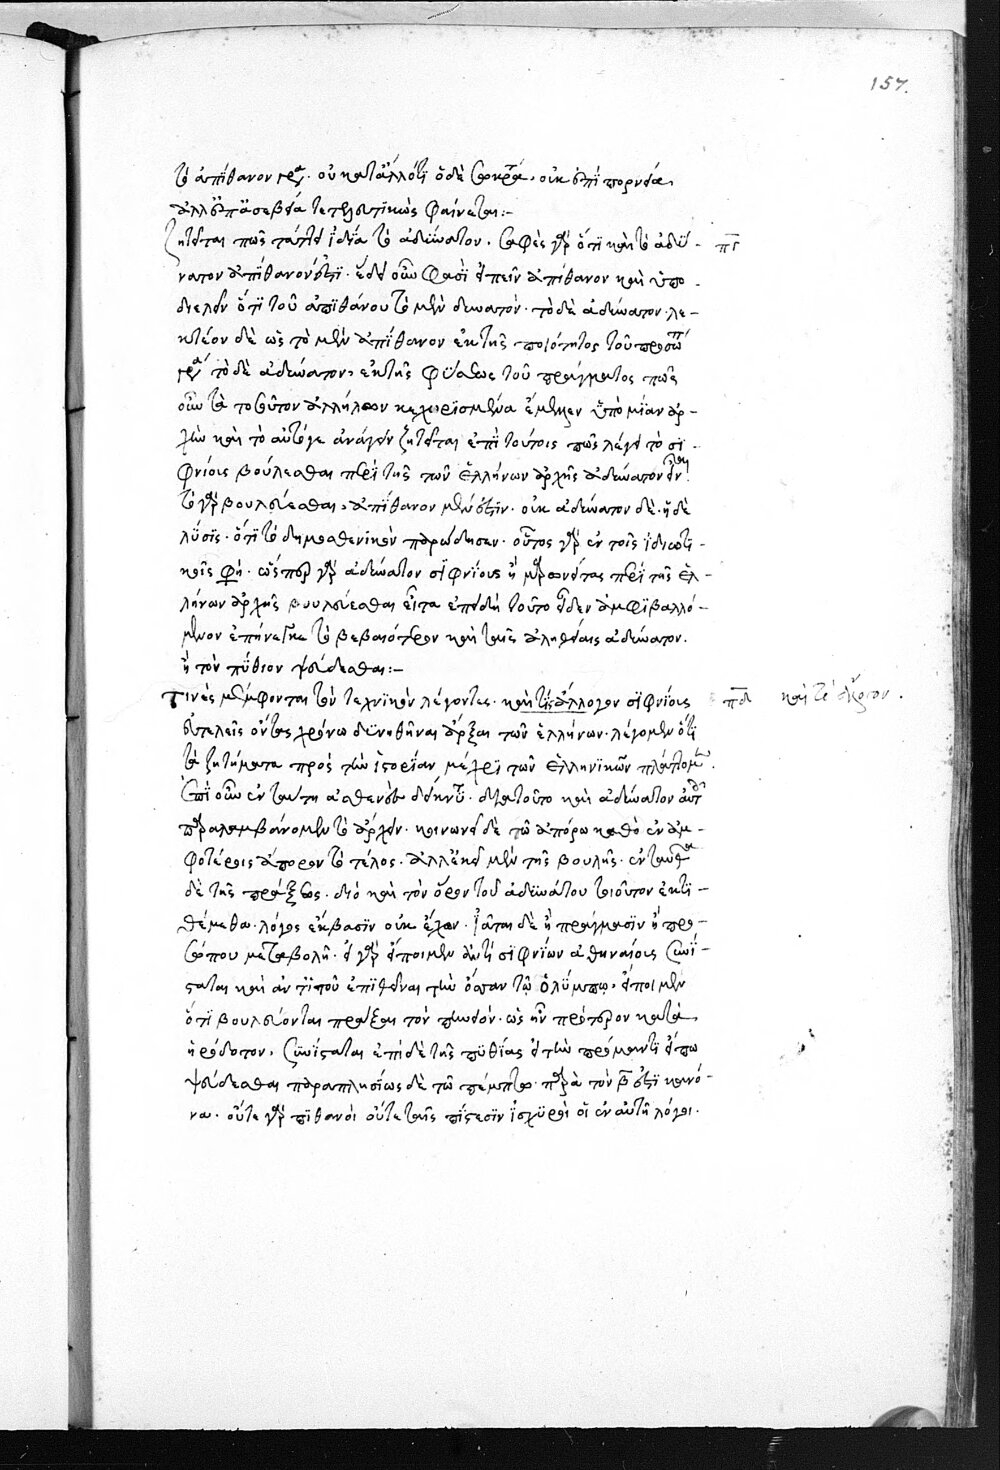 157.
τὸ ἀπίθανον γρά. οὐ κατάλλότϊ ὁδὲ σωκρά. οὐκ ἐπϊ πορνεία,
ἀλλ' ἐπ' ἀσεβεία τετηρητικὼς φαίνεται:-
ζητεῖται πῶς ταὐτεῖ ἰδία τὸ ἀδύνατον. σαφὲς γὰρ ὅτϊ καὶ τὸ ἀδύ- πγ
νατον ἀπίθανον ἐστϊ. ἔδει οὖν φασϊ εἰπεῖν ἀπίθανον καὶ ὑπο-
διελεῖν ὅτϊ τοῦ ἀπιθάνου τὸ μὲν δυνατὸν. τὸ δὲ ἀδύνατον. λε-
κτέον δὲ ὡς τὸ μὲν ἀπίθανον ἐκ τῆς ποιότητος τοῦ προσώπ
τὸ δὲ ἀδύνατον, ἐκ τῆς φύσεως τοῦ πράγματος πῶς
οὖν τὰ τοσοῦτον ἀλλήλων κεχωρϊσμένα ἔμελλεν ὑπὸ μίαν ἀρ-
χὴν καὶ τὸ αὐτό γε ἀνάγειν ζητεῖται ἐπὶ τούτοις πῶς λέγει τὸ σϊ-
φνίοις βούλεσθαι περὶ τῆς τῶν Ἑλλήνων ἀρχῆς ἀδύνατον εἶναι
τὸ γὰρ βουλεύεσθαι, ἀπίθανον μὲν ἐστϊν. οὐκ ἀδύνατον δὲ. ἡ δὲ
λύσϊς. ὅτϊ τὸ δημοσθενϊκὸν παρώδησεν. οὗτος γὰρ ἐν τοῖς ἰδιωτϊ-
κοῖς φη. ὥσπερ γὰρ ἀδύνατον σϊφνίους ἢ μαρωνείτας περὶ τῆς ἑλ-
λήνων ἀρχῆς βουλεύεσθαι εἶτα ἐπειδὴ τοῦτο εἶδεν ἀμφϊβαλλό-
μενον ἐπήνεγκε τὸ βεβαιότερον καὶ ταῖς ἀληθείαις ἀδύνατον.
ἢ τὸν πύθιον ψεύδεσθαι:-
τινὲς μέμφονται τὸν τεχνϊκὸν λέγοντες. καὶ τίς ἄλλογον σϊφνίοις πδ
εὐτελεῖς ὄντας χρόνω δυνηθῆναι ἄρξαι τῶν ἑλλήνων. λέγομεν ὅτϊ
τὰ ζητήματα πρὸς τὴν ἱστορίαν μέχρϊ τῶν ἑλληνϊκῶν πλάττομ.
ἐπϊ οὖν ἐν ταύτη ἀσθενεῖς δείκνυ. διὰ τοῦτο καὶ ἀδύνατον αὐτ
παραλαμβάνομεν τὸ ἄρχειν. κοινωνεῖ δὲ τῶ ἀπόρω καθὸ ἐν ἀμ-
φοτέροις ἄπορον τὸ τέλος. ἀλλ' ἐκεῖ μὲν τῆς βουλῆς. ἐνταῦθα
δὲ τῆς πράξεως. διὸ καὶ τὸν ὅρον τοῦ ἀδυνάτου τοιοῦτον ἐκτϊ-
θέμεθα. λόγος ἔκβασϊν οὐκ ἔχων. ἰᾶται δὲ ἢ πράγμασϊν ἢ προ-
σώπου μεταβολῆ. εἰ γὰρ εἴποιμεν ἀντὶ σϊφνίων ἀθηναίοις συνί-
σταται καὶ ἀντὶ τοῦ ἐπϊθεῖναι τὴν ὄσσαν τῷ ὀλύμπῳ, εἴποιμεν
ὅτϊ βουλεύονται πρᾶξαι τὸν πλωτόν. ὡς ἦν πρότερον κατὰ
ἡρόδοτον, συνίσταται ἐπὶ δὲ τῆς πυθίας εἰ τὴν πρόμαντϊν εἴπω
ψεύδεσθαι παραπλησίως δὲ τῶ πέμπτω. παρὰ τὸν β ἐστϊ κανό-
να. οὔτε γὰρ πιθανοὶ οὔτε ταῖς πίστεσϊν ἰσχυροὶ οἱ ἐν αὐτῆ λόγοι.